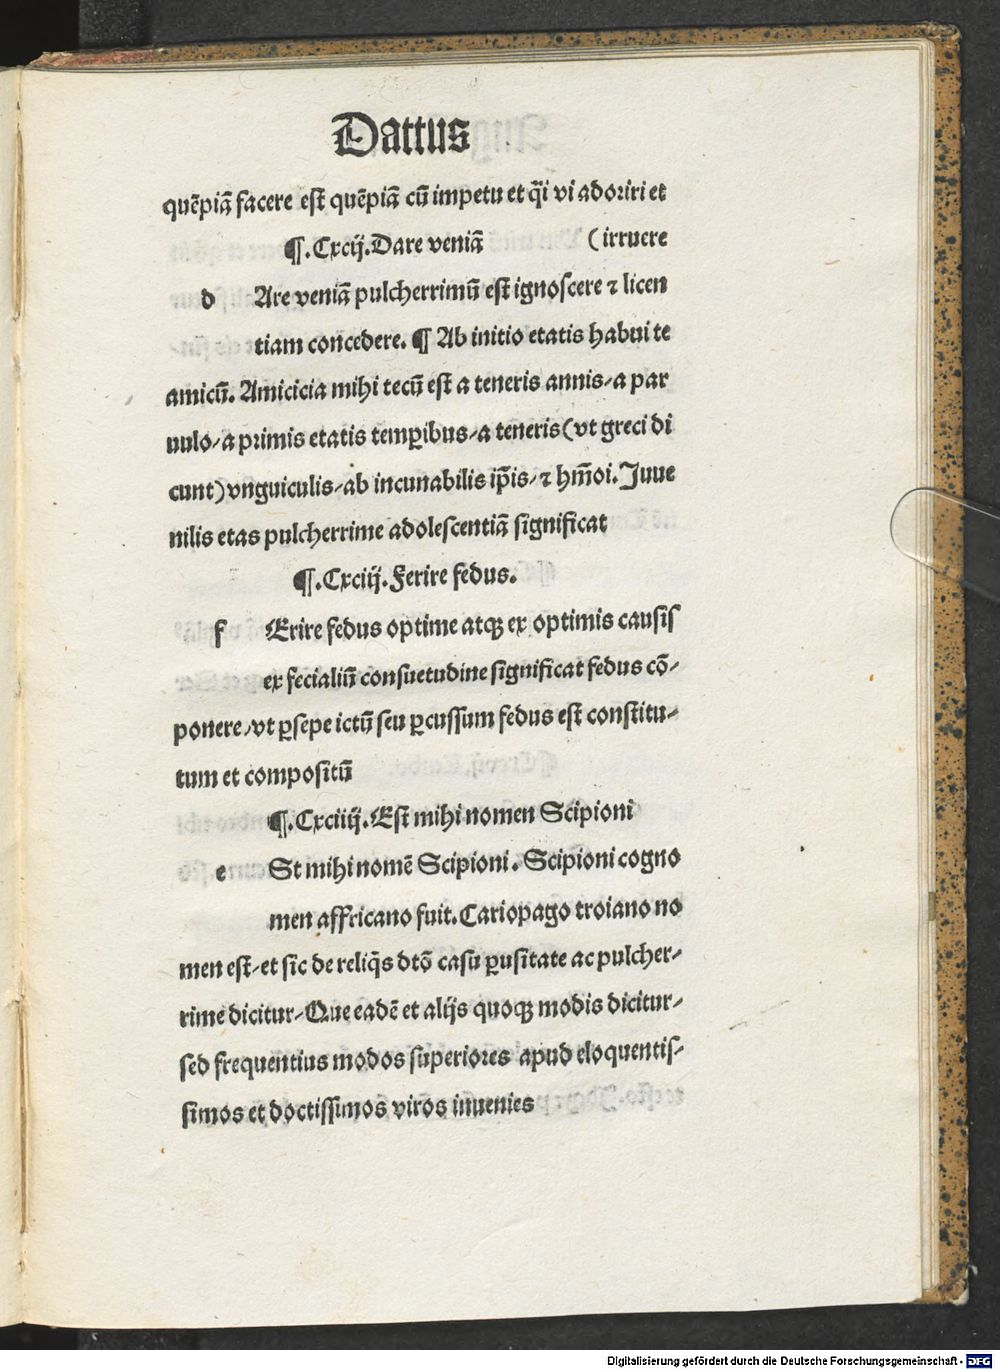 Dattus
quēpiā facere est quēpiā cū impetu et q̄i vi adoriri et
¶.Cxcij.Dare veniā (irruere
d Are veniā pulcherrimū est ignoscere ⁊ licen
tiam concedere. ¶ Ab initio etatis habui te
amicū. Amicicia mihi tecū est a teneris annis/a par
uulo/a primis etatis temꝑibus/a teneris(vt greci di
cunt)vnguiculis/ab incunabilis ip̄is/⁊ hm̄oi.Juue
nilis etas pulcherrime adolescentiā significat
¶.Cxciij.Ferire fedus.
f Erire fedus optime atqꝫ ex optimis causis
ex fecialiū consuetudine significat fedus cō/
ponere/vt ꝑsepe ictū seu ꝑcussum fedus est constitu/
tum et compositū
¶.Cxciiij.Est mihi nomen Scipioni
e St mihi nomē Scipioni.Scipioni cogno
men affricano fuit.Cariopago troiano no
men est/et sic de reliq̄s dtō casu ꝑusitate ac pulcher/
rime dicitur/Que eadē et alijs quoqꝫ modis dicitur/
sed frequentius modos superiores apud eloquentis/
simos et doctissimos viros inuenies
Digitalisierung gefördert durch die Deutsche Forschungsgemeinschaft - DFG